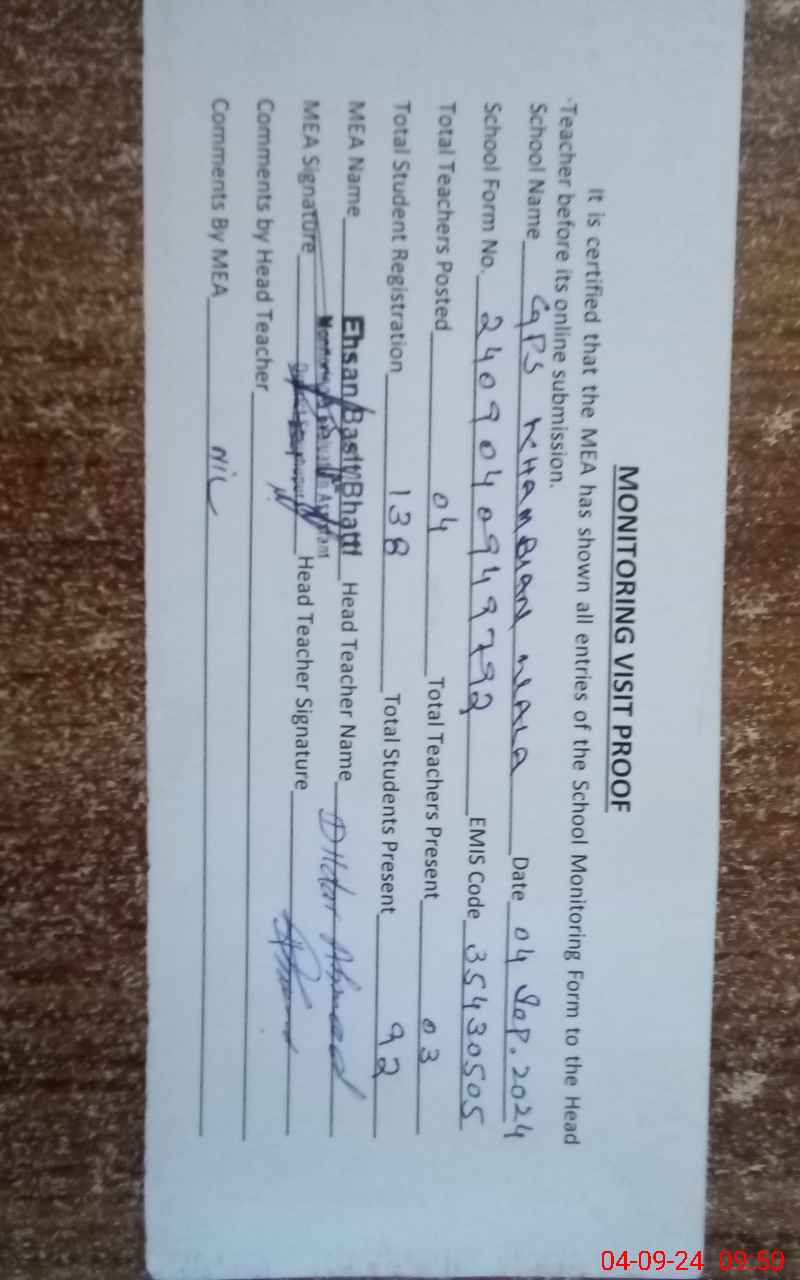 MONITORING VISIT PROOF
It is certified that the MEA has shown all entries of the School Monitoring Form to the Head
Teacher before its online submission.
School Name GPS KHAMBIAN WALA Date 04 Sep. 2024
School Form No. 24090409949792 EMIS Code 35430505
Total Teachers Posted 04 Total Teachers Present 03
Total Student Registration 138 Total Students Present 92
MEA Name Ehsan Basit Bhatti Head Teacher Name Dildar Ahmad
MEA Signature Monitoring Assistant Head Teacher Signature
Comments by Head Teacher
Comments By MEA Nil
04-09-24 09:50